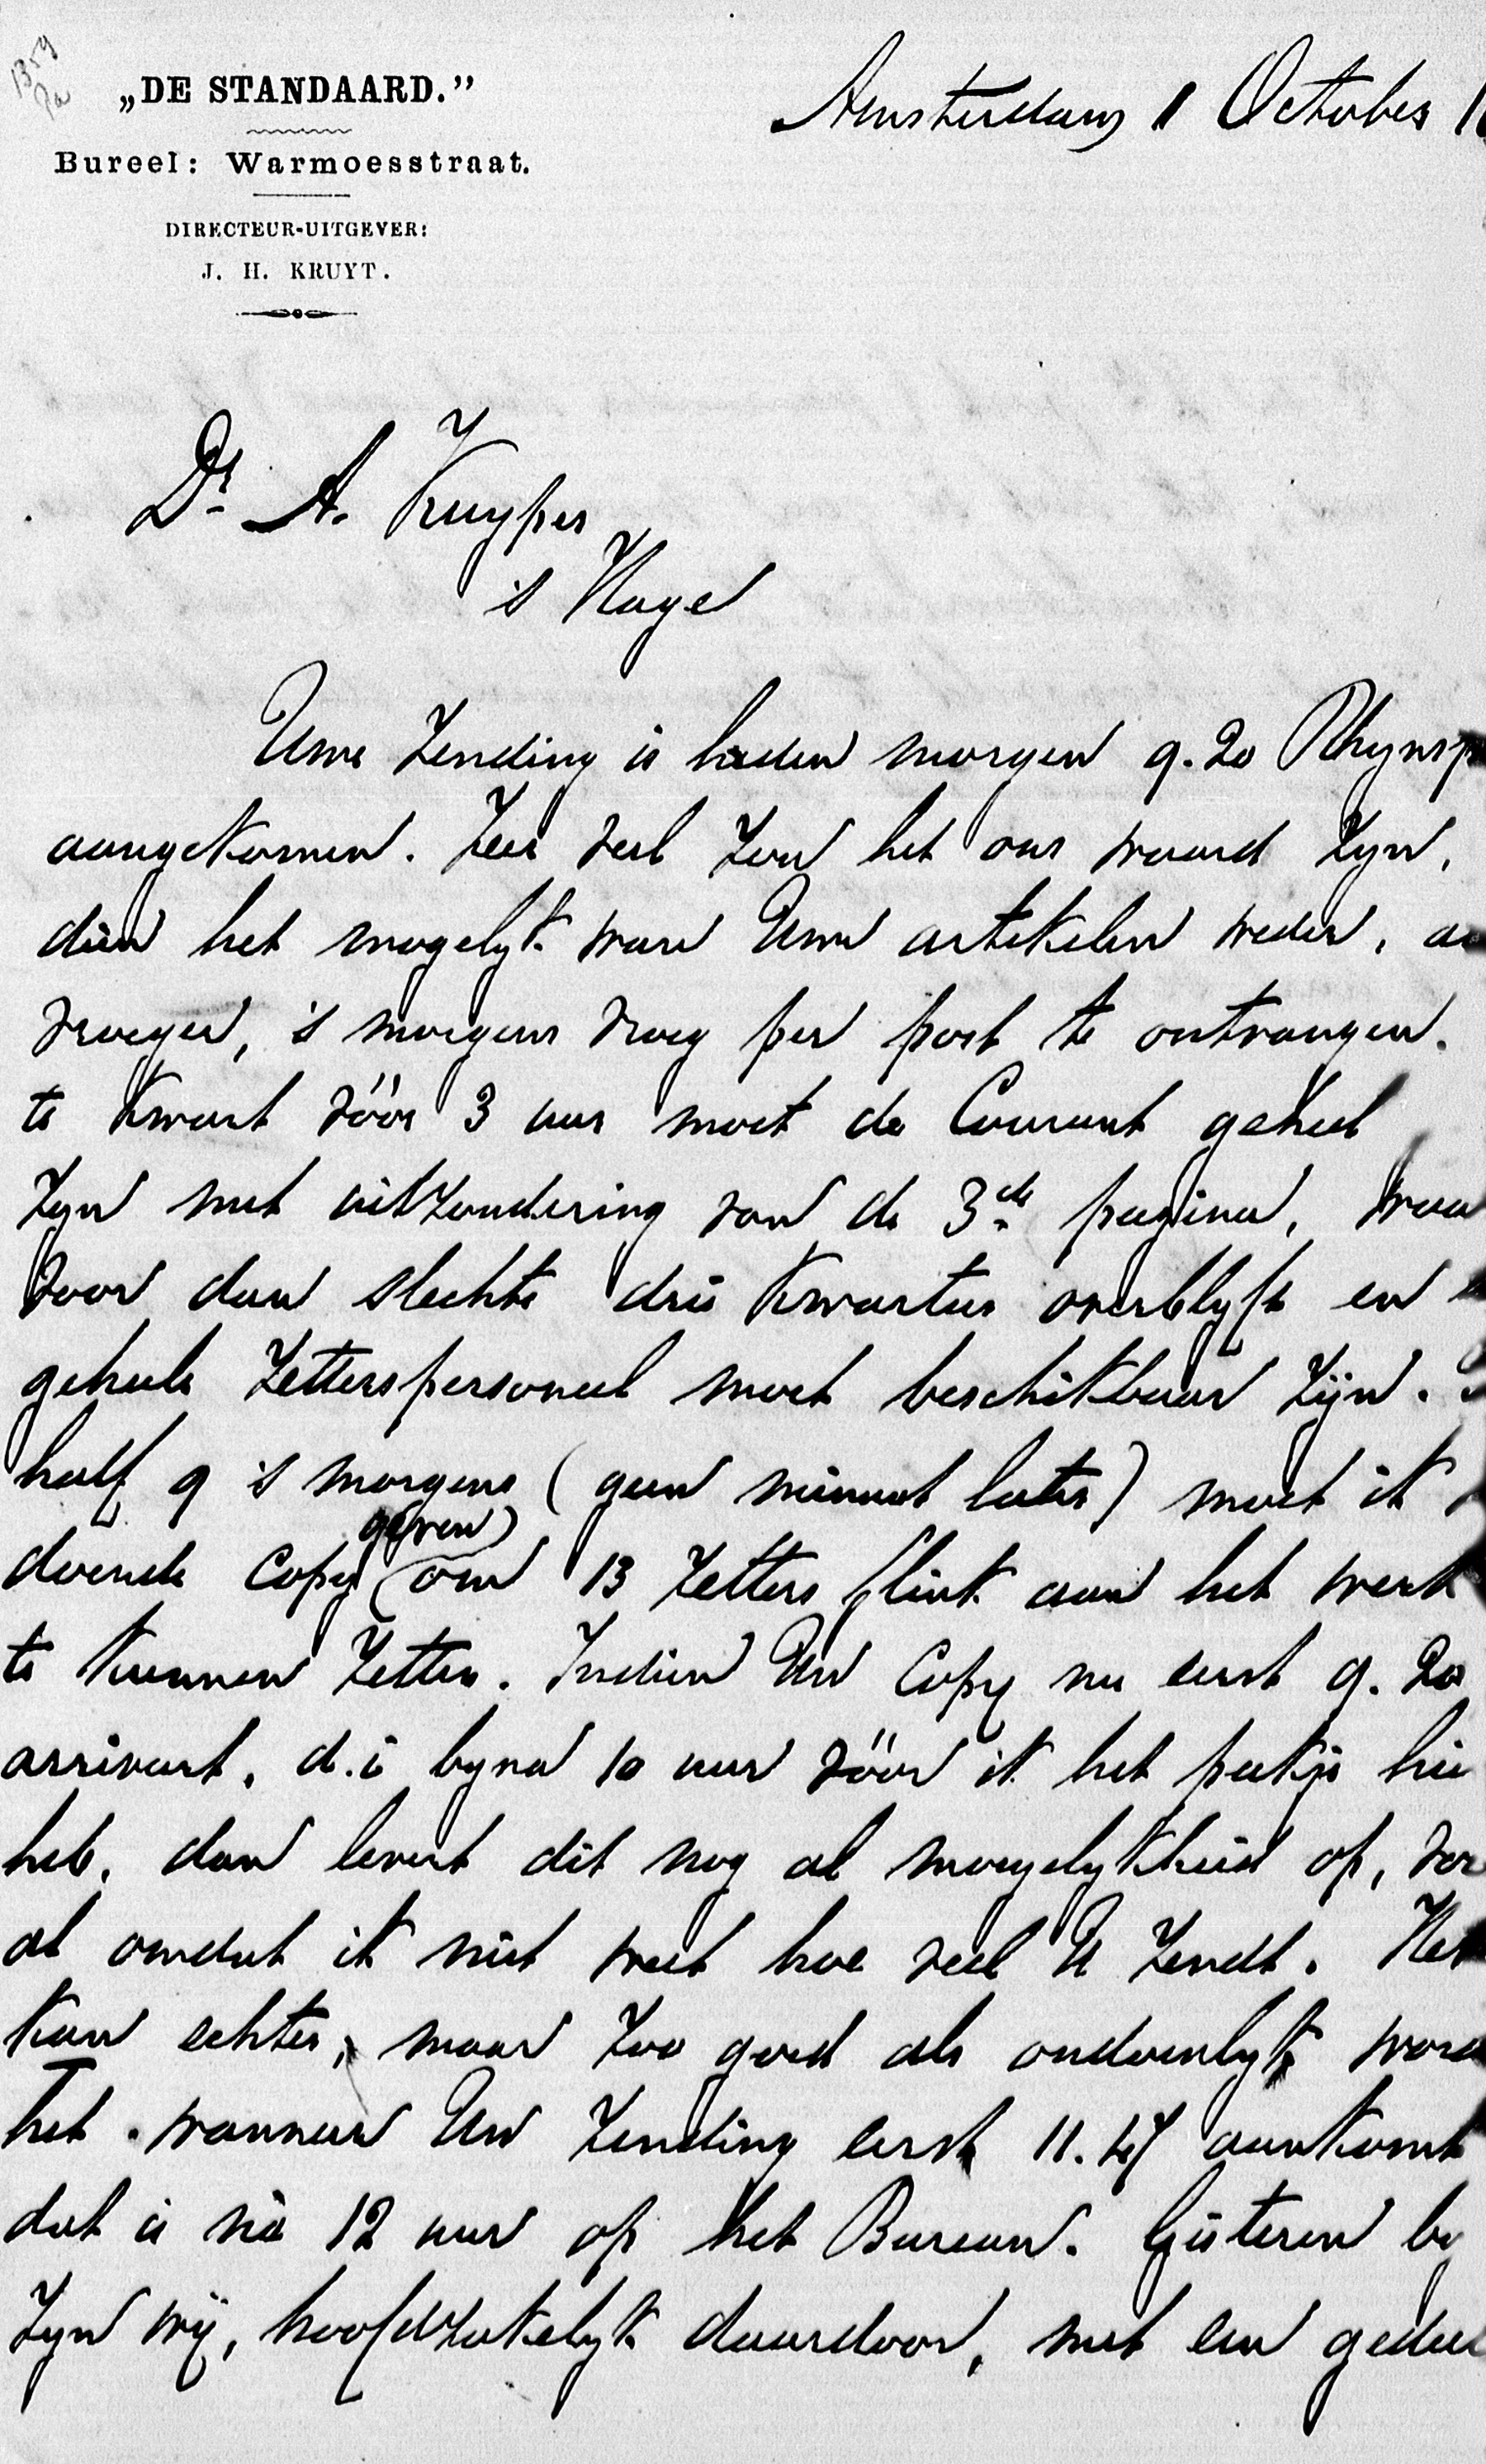 1359
2a
„DE STANDAARD.”
Bureel: Warmoesstraat.
DIRECTEUR-UITGEVER:
J. H. KRUYT.
Amsterdam 1 October 1
Dr. A. Kuyper
's Hage
Uwe Zending is heden morgen 9.20 Rhynsp
aangekomen. Zeer veel zou het ons waard zyn,
dien het mogelyk ware Uwe artikelen weder, a
vroeger, 's morgens vroeg per post te ontvangen.
te kwart vóór 3 uur moet de Courant geheel
zyn met uitzondering van de 3de pagina, waa
voor dan slechts drie kwartier overblyft en
geheele Zetterspersoneel moet beschikbaar zijn.
half 9 's morgens (geen minuut later) moet ik
doende Copy geven om 13 Zetters flink aan het werk
te kunnen Zetten. Indien Uw Copy nu eerst 9.20
arriveert, d.i byna 10 uur vóór ik het pakje hie
heb, dan levert dit nog al moeyelykheid op, voor
al omdat ik niet weet hoe veel U Zendt. Het
kan echter, maar zoo goed als ondoenlyk word
het wanneer Uw Zending eerst 11.47 aankomt
dat is na 12 uur op het Bureau. Gisteren by
zyn wij, hoofdzakelyk daardoor, met een gedeel